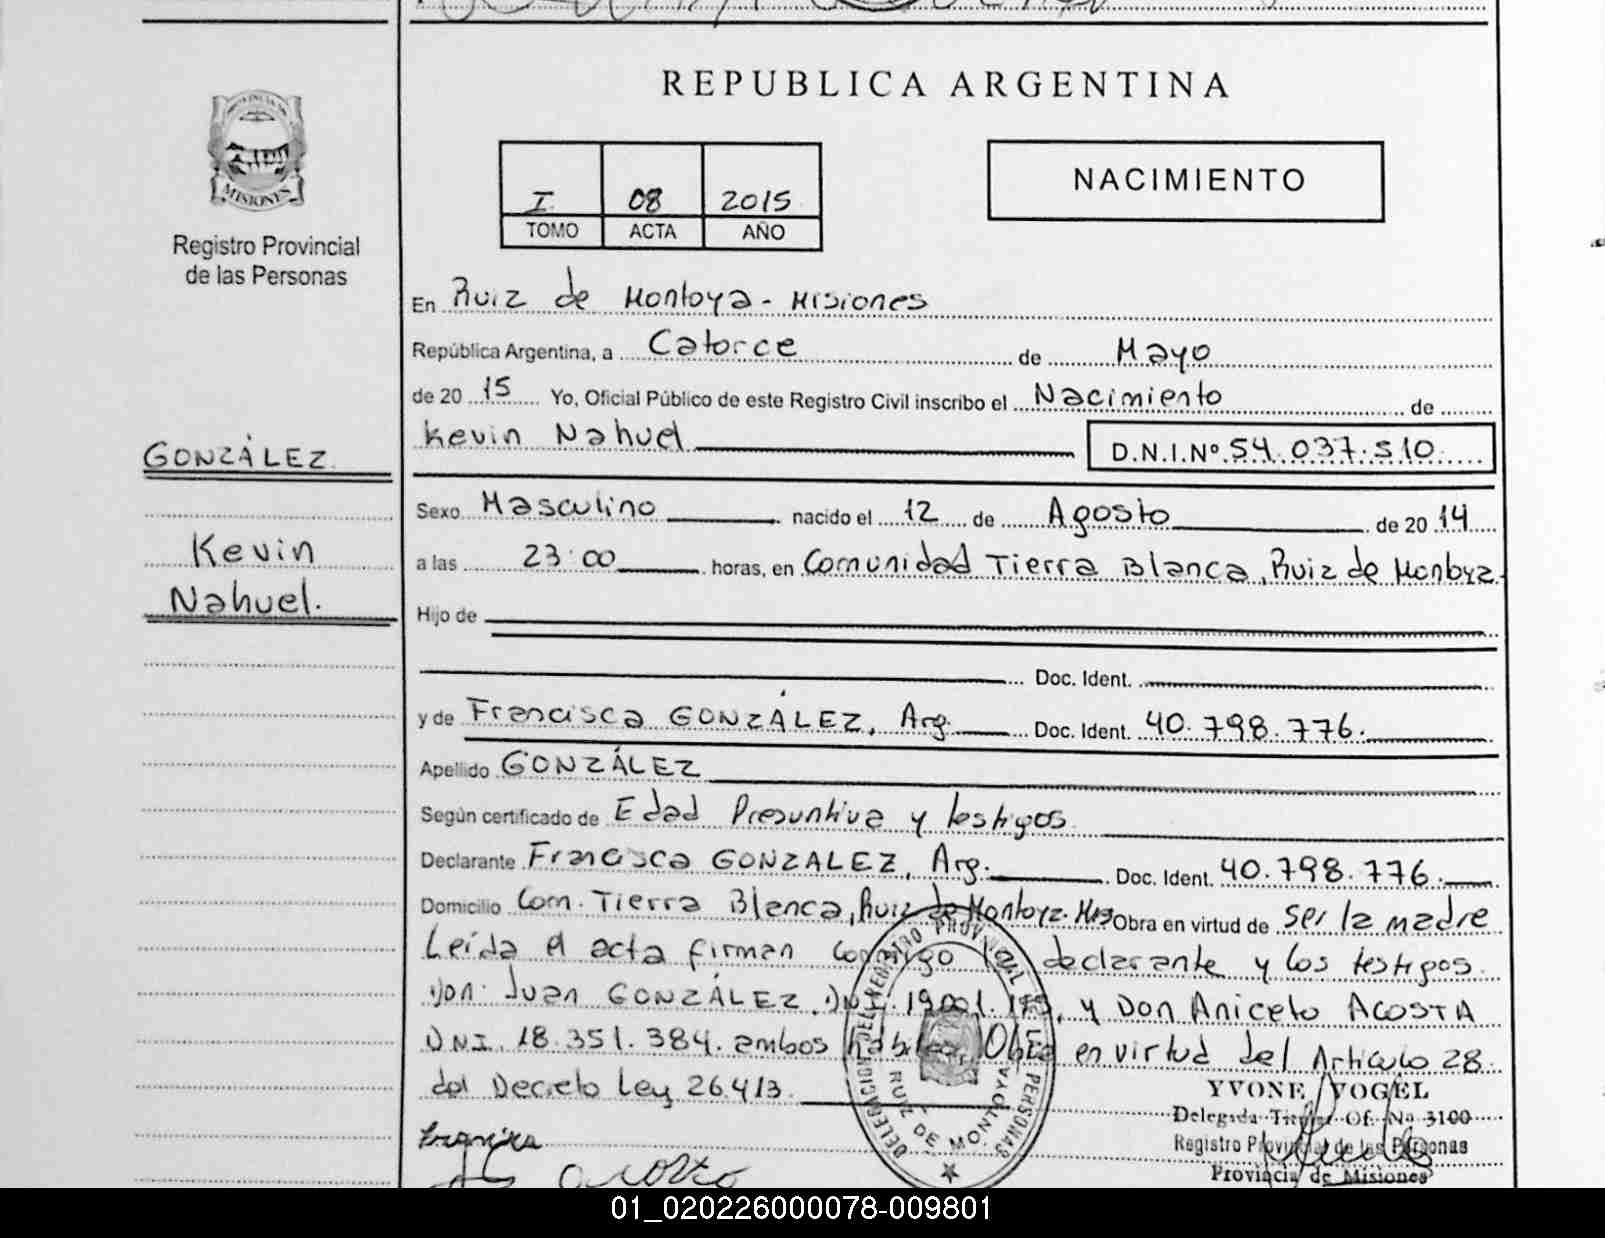 REPUBLICA ARGENTINA
PROVINCIA DE
MISIONES
Registro Provincial
de las Personas
NACIMIENTO
I 08 2015
TOMO ACTA AÑO
En Ruiz de Montoya - Misiones
República Argentina, a Catorce de Mayo
de 20 15 Yo, Oficial Público de este Registro Civil inscribo el Nacimiento de
Kevin Nahuel D.N.I.Nº 54.037.510
GONZÁLEZ
Kevin
Nahuel.
Sexo Masculino nacido el 12 de Agosto de 20 14
a las 23:00 horas, en Comunidad Tierra Blanca, Ruiz de Montoya
Hijo de
Doc. Ident.
y de Francisca GONZÁLEZ, Arg. Doc. Ident. 40.798.776.
Apellido GONZÁLEZ
Según certificado de Edad Presuntiva y testigos
Declarante Francisca GONZALEZ, Arg. Doc. Ident. 40.798.776.
Domicilio Com. Tierra Blanca, Ruiz de Montoya. Mnes Obra en virtud de ser la madre
Leída el acta firman conmigo la declarante y los testigos
Don Juan GONZÁLEZ, DNI. y Don Aniceto ACOSTA
DNI. 18.351.384. ambos habiles, OBRA en virtud del Articulo 28
del Decreto Ley 26.413.
DELEGACION DEL REGISTRO PROVINCIAL DE PERSONAS
RUIZ DE MONTOYA
YVONE VOGEL
Delegada Titular Of. Na 3100
Registro Provincial de las Personas
Provincia de Misiones
Francisca
01_020226000078-009801